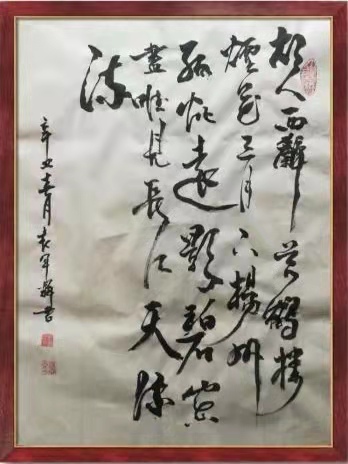 故人西辭黃鶴樓
煙花三月下揚州
孤帆遠影碧空
盡唯見長江天際
流
辛丑春月袁軍書